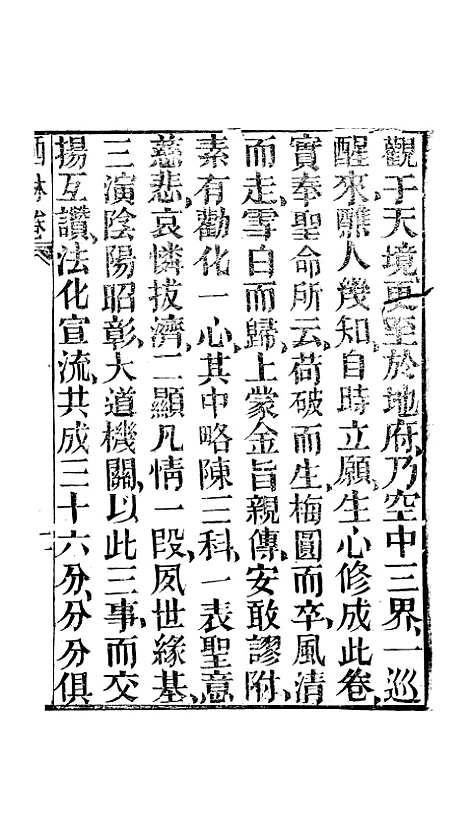 觀于天境更至於地府乃空中三界一巡
醒來醮人幾知自時立願生心修成此卷
實奉聖命所云荷破而生梅圓而卒風清
而走雪白而歸上蒙金旨親傳安敢謬附
素有勸化一心其中略陳三科一表聖意
慈悲哀憐拔濟二顯凡情一段夙世緣基
三演陰陽昭彰大道機關以此三事而交
揚互讚法化宣流共成三十六分分分俱